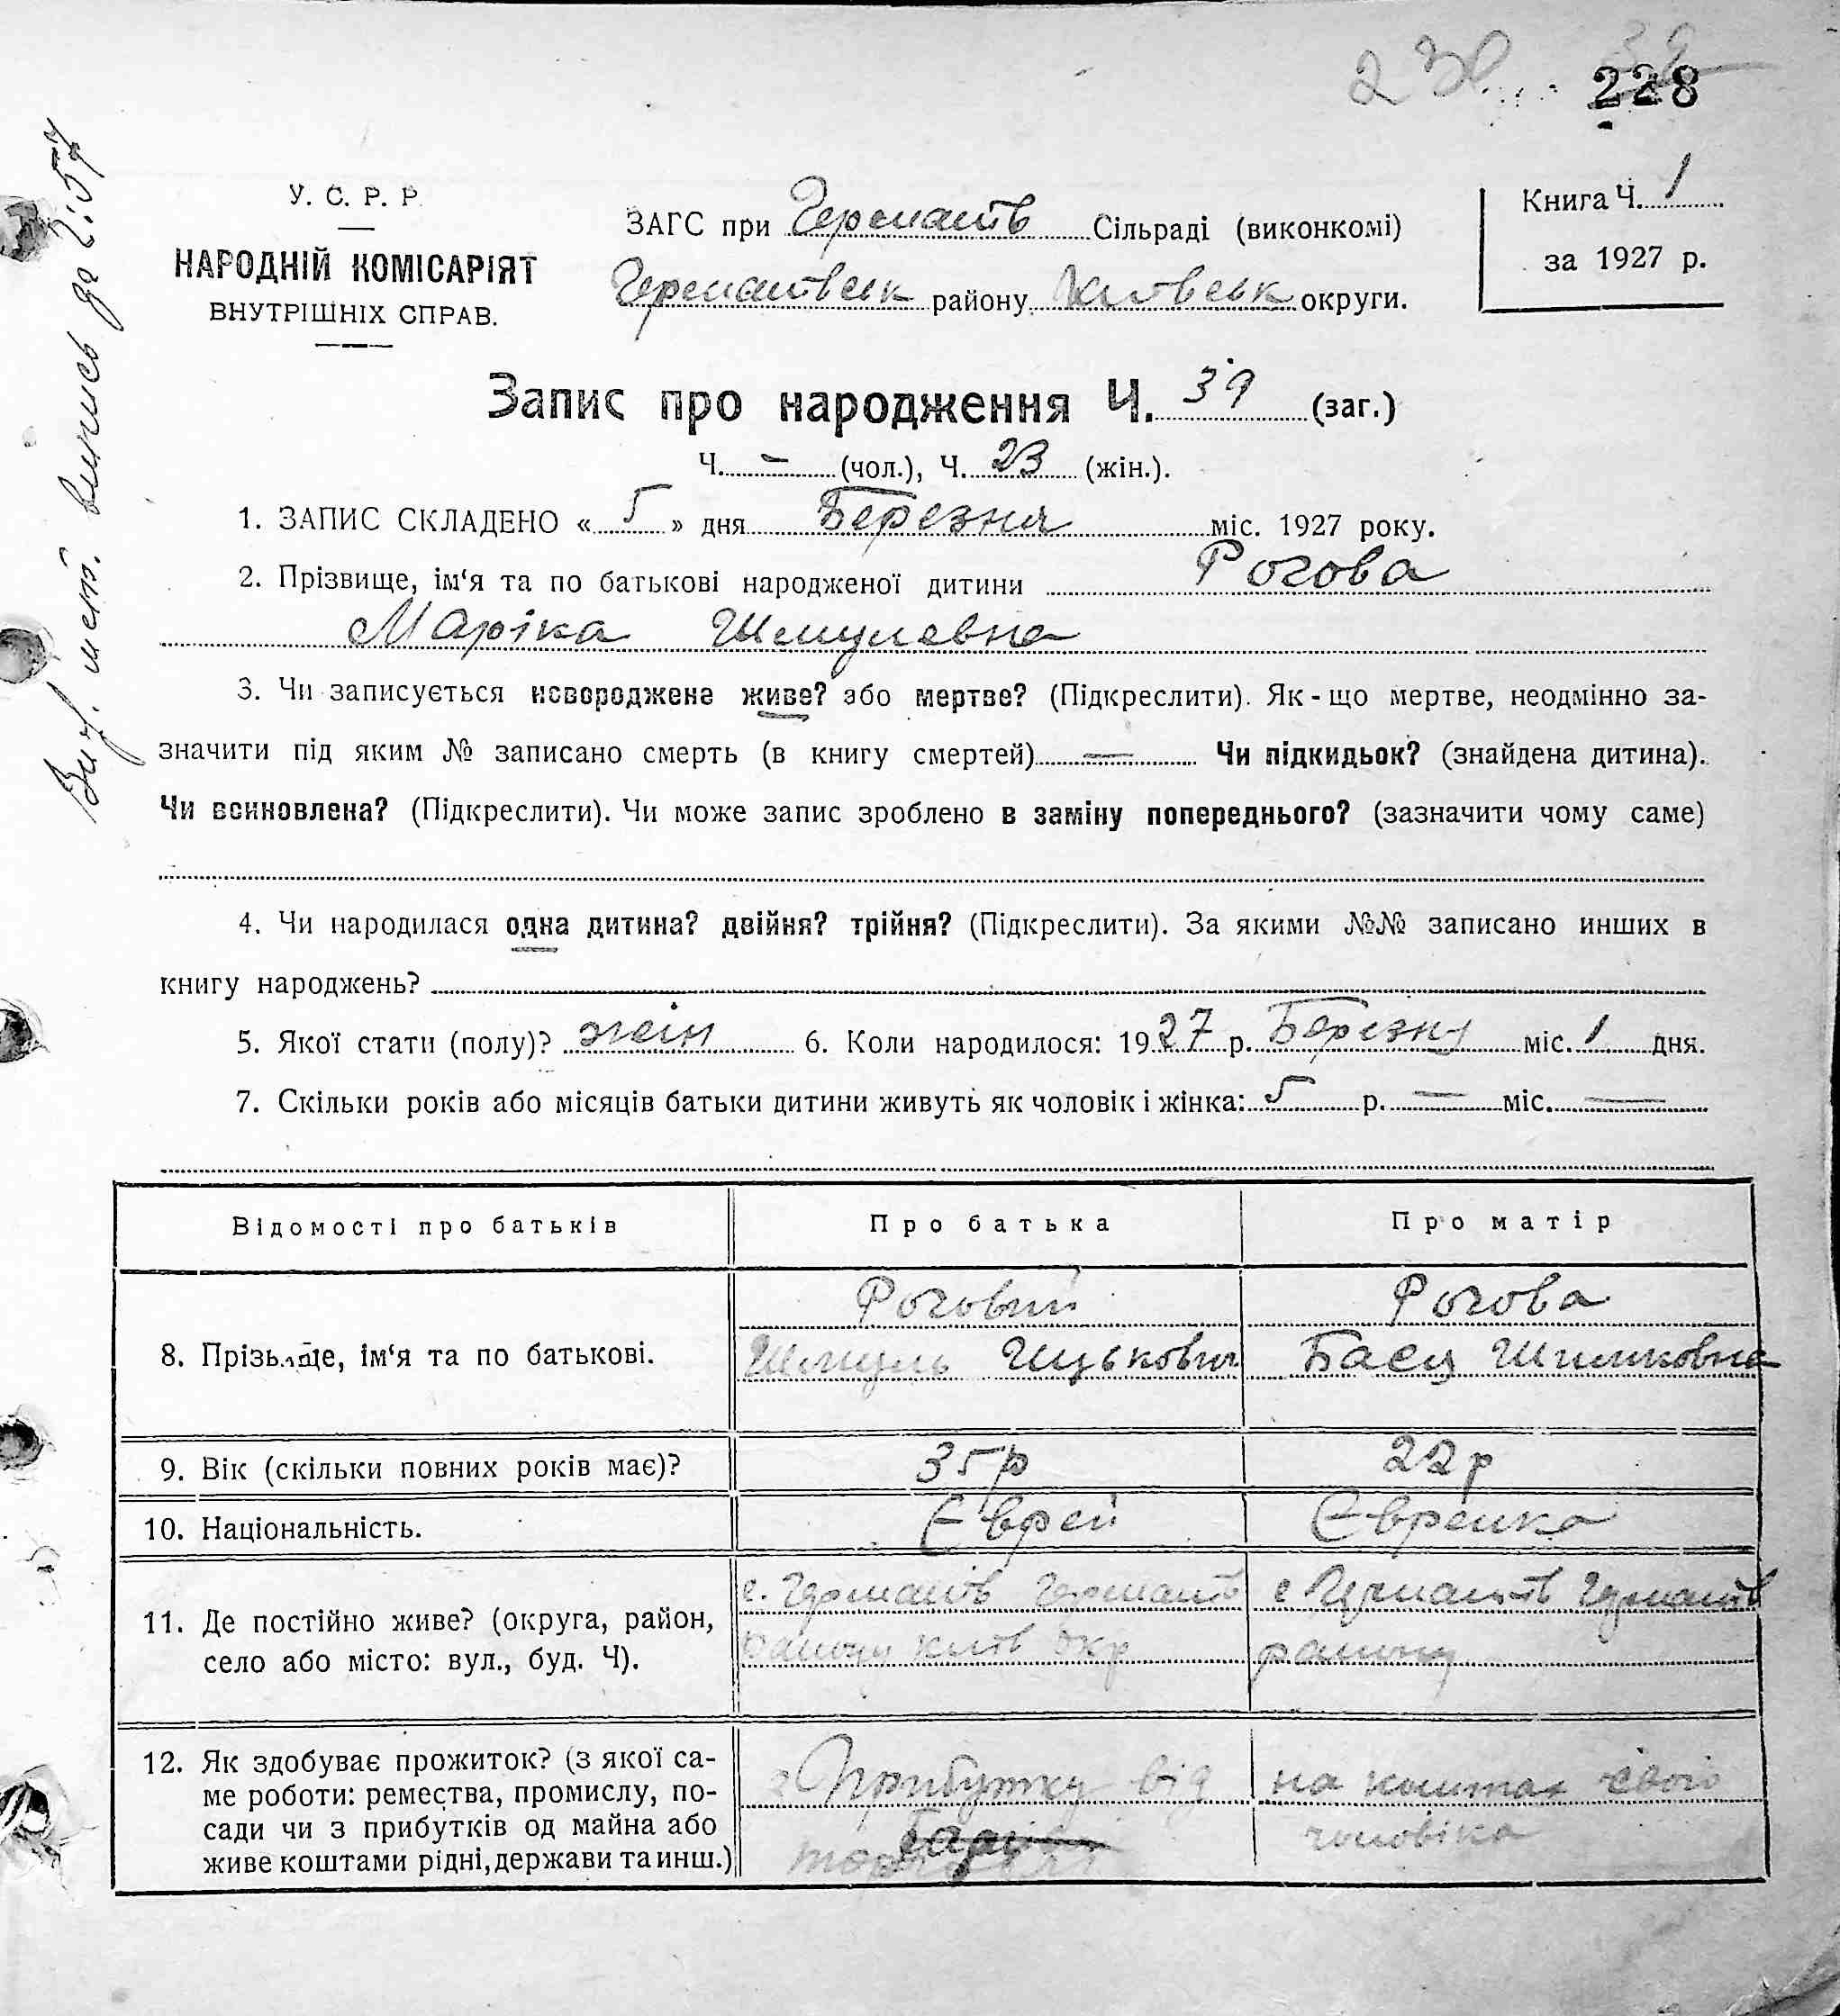 230 39
228
У. С. Р. Р.
НАРОДНІЙ КОМІСАРІЯТ
ВНУТРІШНІХ СПРАВ.
ЗАГС при Германів Сільраді (виконкомі)
Германівськ району Київськ округи.
Книга Ч. 1
за 1927 р.
Запис про народження Ч. 39 (заг.)
Ч. – (чол.), Ч. 23 (жін.).
1. ЗАПИС СКЛАДЕНО « 5 » дня Березня міс. 1927 року.
2. Прізвище, ім‘я та по батькові народженої дитини Рогова
Маріка Шмулевна
3. Чи записується новороджене живе? або мертве? (Підкреслити). Як-що мертве, неодмінно за-
значити під яким № записано смерть (в книгу смертей) — Чи підкидьок? (знайдена дитина).
Чи всиновлена? (Підкреслити). Чи може запис зроблено в заміну попереднього? (зазначити чому саме)
4. Чи народилася одна дитина? двійня? трійня? (Підкреслити). За якими №№ записано инших в
книгу народжень?
5. Якої стати (полу)? жін 6. Коли народилося: 1927 р. Березня міс. 1 дня.
7. Скільки років або місяців батьки дитини живуть як чоловік і жінка: 5 р. — міс. —
Відомості про батьків Про батька Про матір
8. Прізвище, ім‘я та по батькові.
Роговий Рогова
Шмуль Ицькович Бася Шимковна
9. Вік (скільки повних років має)? 35р 22р
10. Національність. Єврей Єврейка
11. Де постійно живе? (округа, район,
село або місто: вул., буд. Ч).
с. Германів Германів с Германів Германів
району Київ окр району
12. Як здобуває прожиток? (з якої са-
ме роботи: ремества, промислу, по-
сади чи з прибутків од майна або
живе коштами рідні, держави та инш.)
з Прибутку від на коштах свого
чоловіка